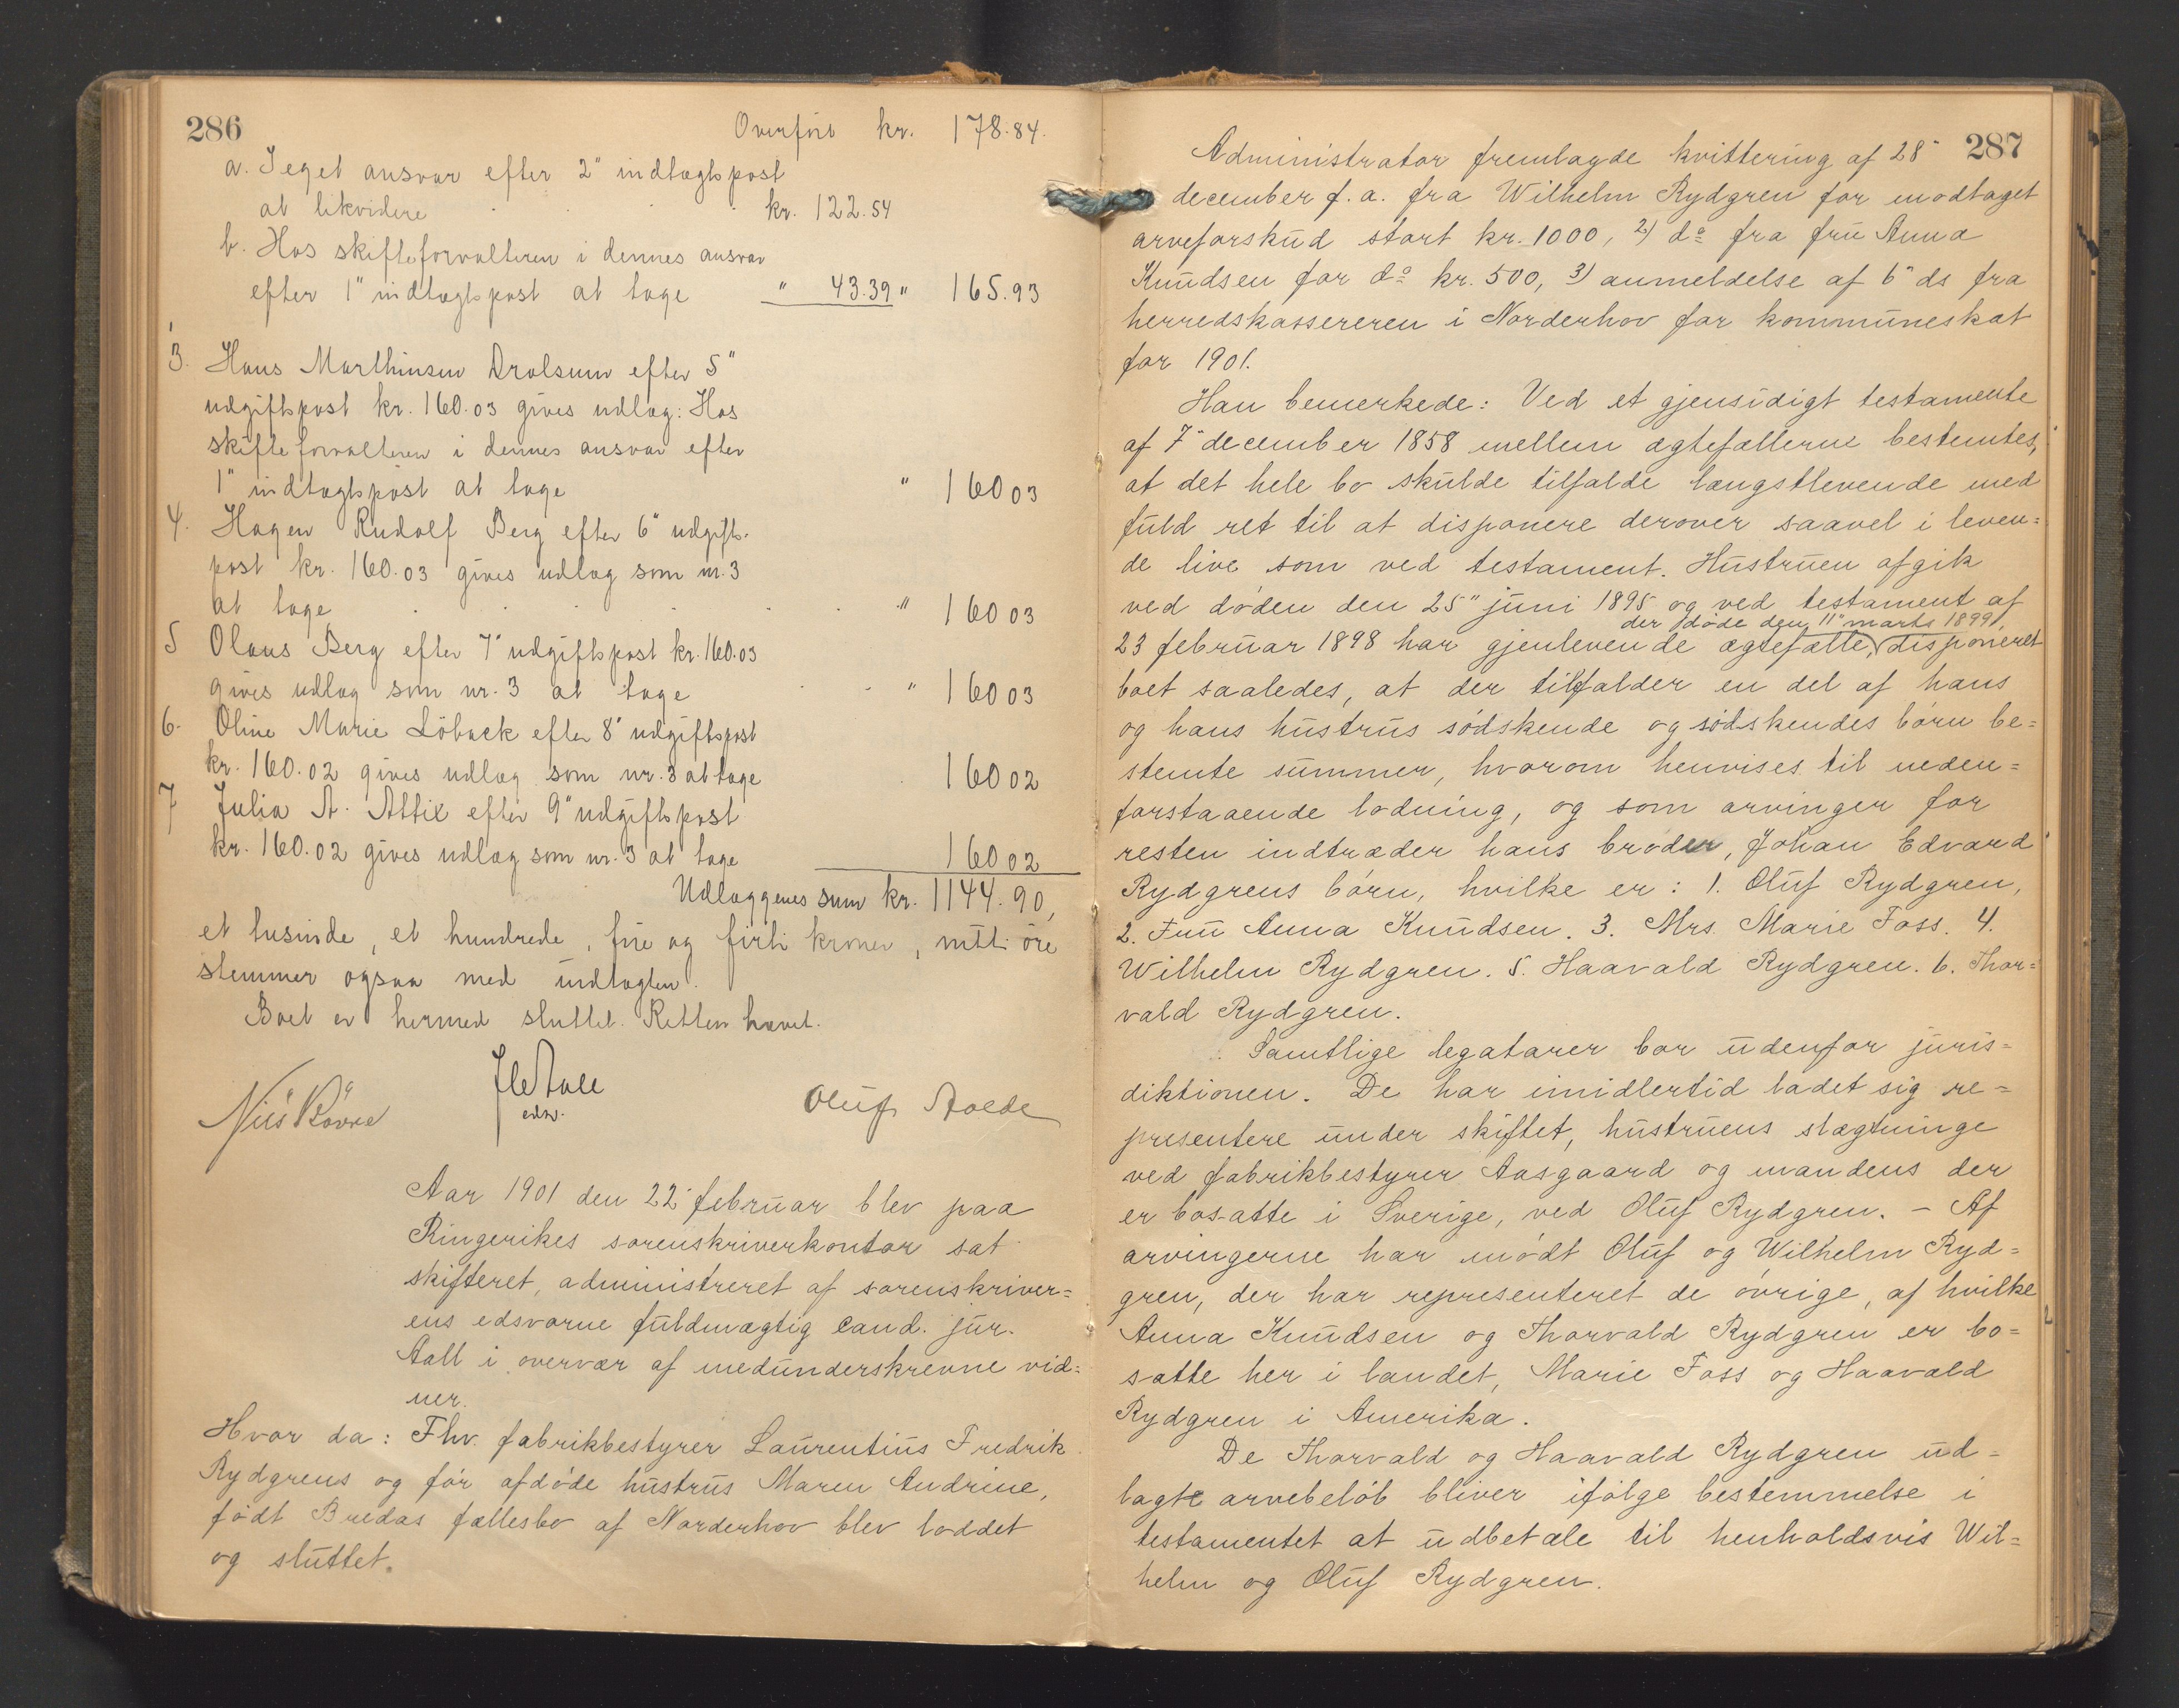 286
Overført kr. 178.84.
a. I eget ansvar efter 2" indtægtspost
at likvidere kr. 122.54
b. Hos skifteforvalteren i dennes ansvar
efter 1" indtægtspost at tage " 43.39 " 165.93
3. Hans Marthinsen Drolsum efter 5"
udgiftspost kr. 160.03 gives udlæg: Hos
skifteforvalteren i dennes ansvar efter
1" indtægtspost at tage " 160 03
4. Hagen Rudolf Berg efter 6" udgifts-
post kr. 160.03 gives udlæg som nr. 3
at tage " 160 03
5 Olaus Berg efter 7" udgiftspost kr. 160.03
gives udlæg som nr. 3 at tage " 160 03
6. Oline Marie Löback efter 8" udgiftspost
kr. 160.02 gives udlæg som nr. 3 at tage 160 02
7 Julia A. Attix efter 9" udgiftspost
kr. 160.02 gives udlæg som nr. 3 at tage 160 02
Udlæggenes sum kr. 1144.90,
et tusinde, et hundrede, fire og firti kroner, nitti øre
stemmer ogsaa med indtægten.
Boet er hermed sluttet. Retten hævet.
edsv.
Oluf
Aar 1901 den 22" februar blev paa
Ringerikes sorenskriverkontor sat
skifteret, administreret af sorenskriver=
ens edsvorne fuldmægtig cand. jur.
Aall i overvær af medunderskrevne vid=
ner.
Hvor da: Fhv. fabrikbestyrer Laurentius Fredrik
Rydgrens og før afdøde hustrus Maren Andrine,
født Bredas fællesbo af Norderhov blev loddet
og sluttet.
287
Administrator fremlagde kvittering af 28"
december f. a. fra Wilhelm Rydgren for modtaget
arveforskud stort kr. 1000, 2) do fra fru Anna
Knudsen for do kr. 500, 3) anmeldelse af 6" ds fra
herredskassereren i Norderhov for kommuneskat
for 1901.
Han bemerkede: Ved et gjensidigt testamente
af 7" december 1858 mellem ægtefællerne bestemtes,
at det hele bo skulde tilfalde længstlevende med
fuld ret til at disponere derover saavel i leven=
de live som ved testament. Hustruen afgik
ved døden den 25" juni 1895 og ved testament af
der døde den 11" marts 1899,
23 februar 1898 har gjenlevende ægtefælle, disponeret
boet saaledes, at der tilfalder en del af hans
og hans hustrus sødskende og sødskendes børn be=
stemte summer, hvorom henvises til neden=
forstaaende lodning, og som arvinger for
resten indtræder hans broder, Johan Edvard
Rydgrens børn, hvilke er: 1. Oluf Rydgren,
2. Fru Anna Knudsen. 3. Mrs. Marie Foss. 4.
Wilhelm Rydgren. 5. Haavald Rydgren. 6. Thor=
vald Rydgren.
Samtlige legatarer bor udenfor juris=
diktionen. De har imidlertid ladet sig re=
presentere under skiftet, hustruens slægtninge
ved fabrikbestyrer Aasgaard og mandens der
er bosatte i Sverige, ved Oluf Rydgren. - Af
arvingerne har mødt Oluf og Wilhelm Ryd=
gren, der har representeret de øvrige, af hvilke
Anna Knudsen og Thorvald Rydgren er bo=
satte her i landet, Marie Foss og Haavald
Rydgren i Amerika.
De Thorvald og Haavald Rydgren ud=
lagte arvebeløb bliver ifølge bestemmelse i
testamentet at udbetale til henholdsvis Wil=
helm og Oluf Rydgren.